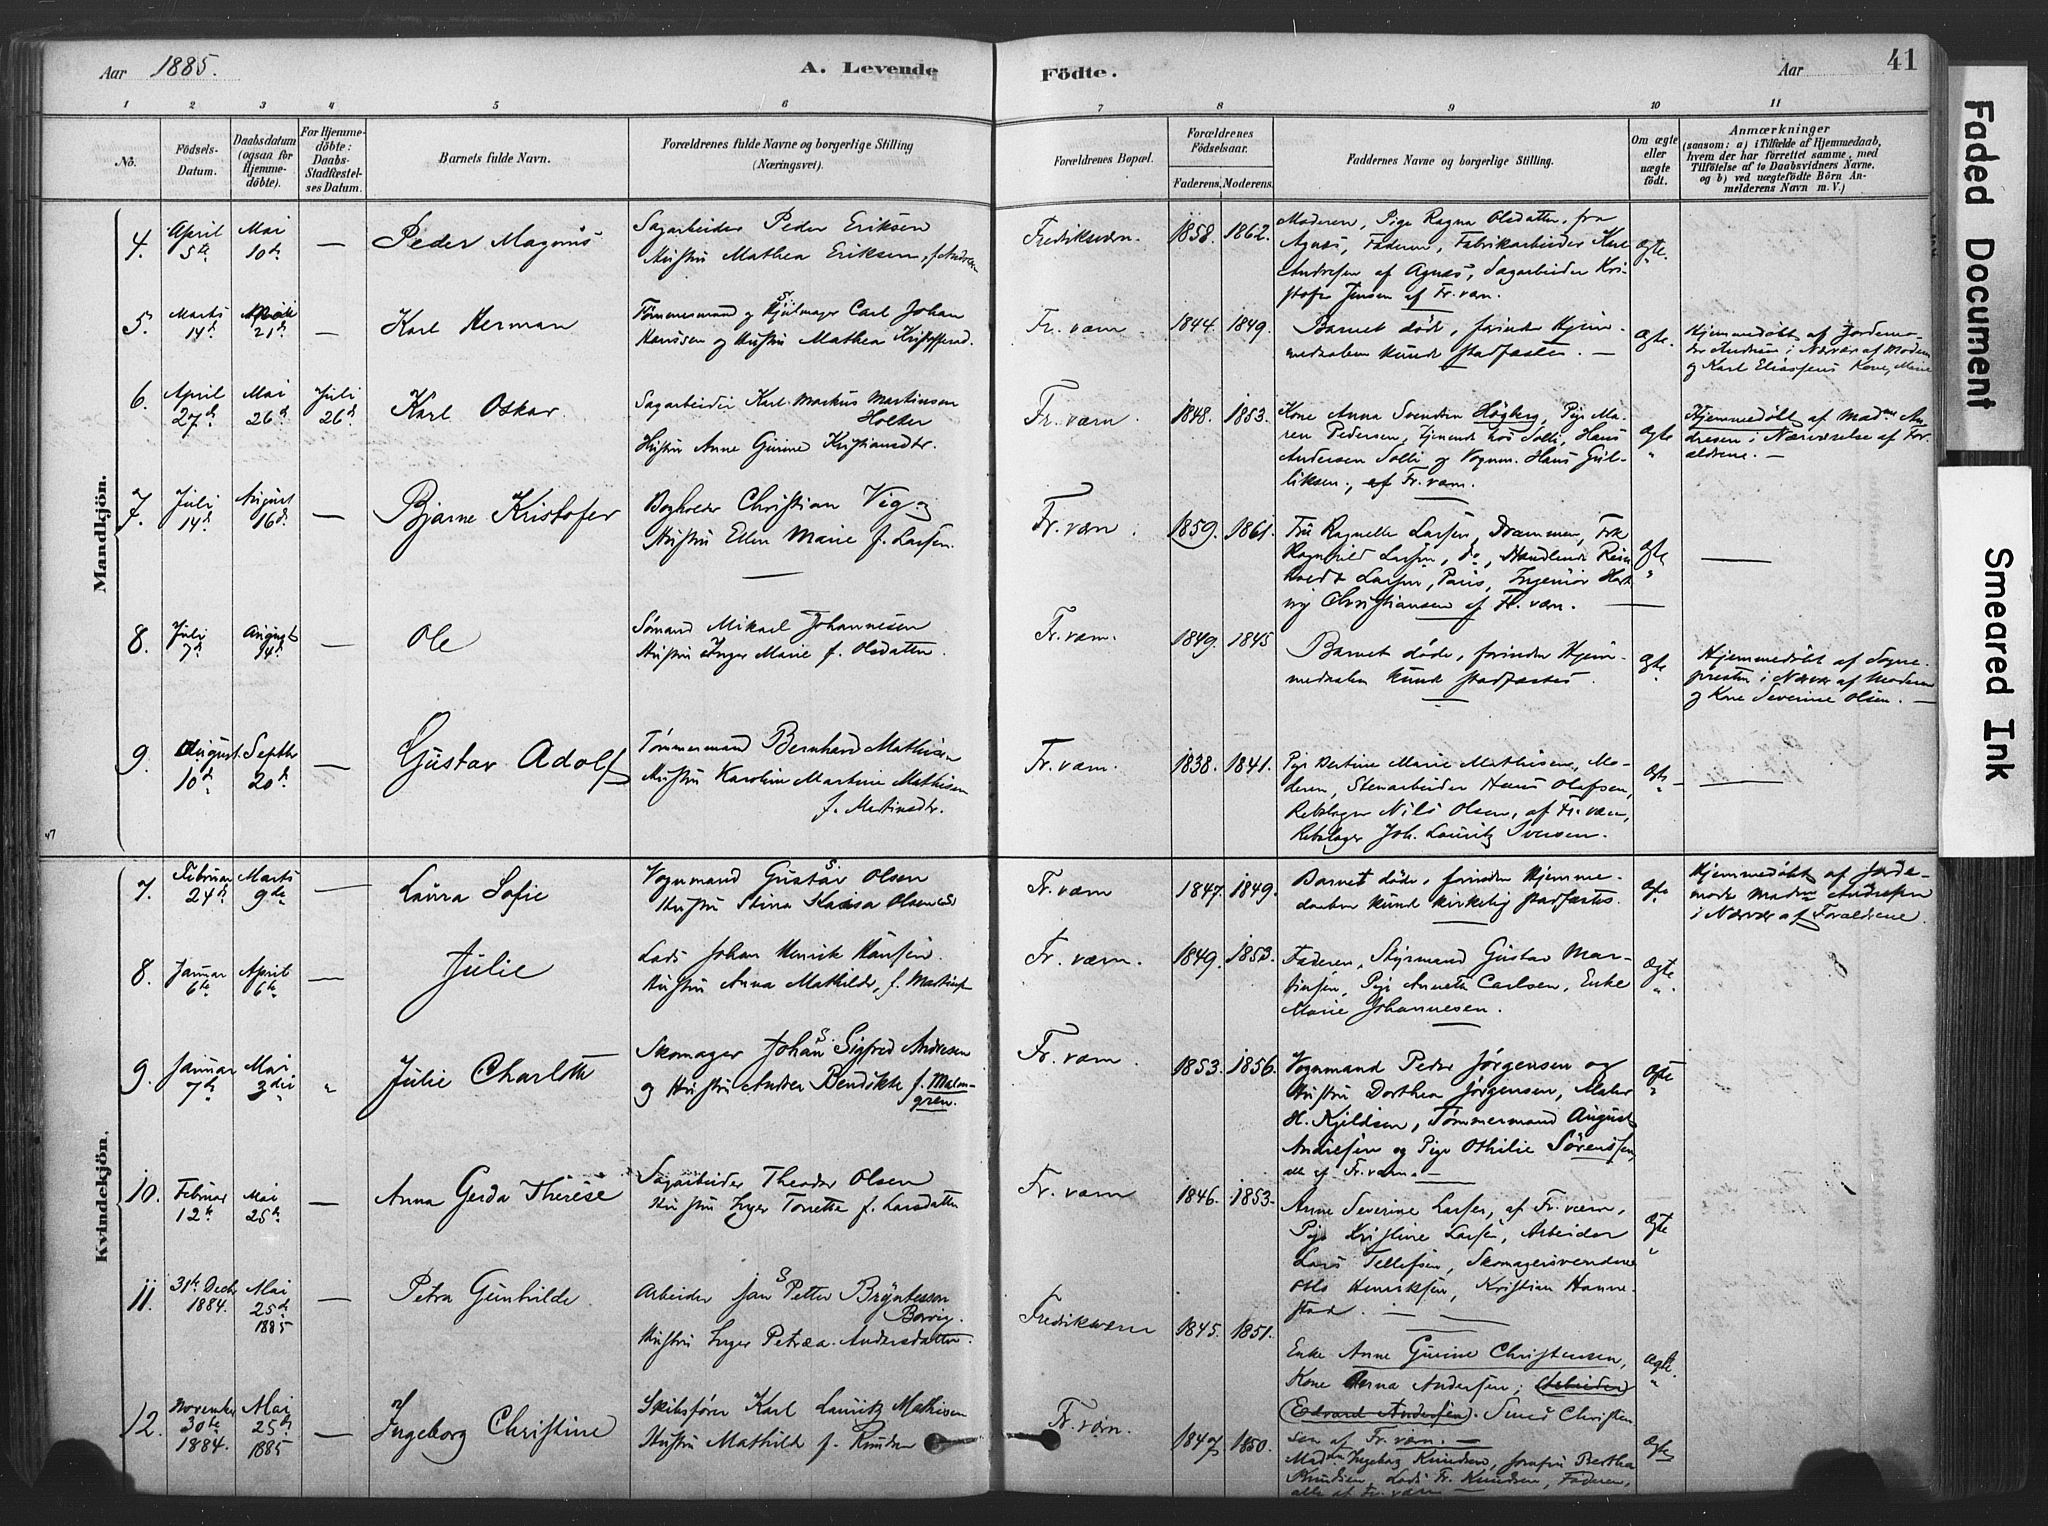 Aar 1885.
A. Levende
Födte.
Aar
41
1 2 3 4 5 6 7 8 9 10 11
No.
Födsels-
Datum.
Daabsdatum
(ogsaa for
Hjemme-
döbte).
For Hjemme-
döbte:
Daabs-
Stadfæstel-
ses Datum.
Barnets fulde Navn.
Forældrenes fulde Navne og borgerlige Stilling
(Næringsvei).
Forældrenes Bopæl.
Forældrenes
Födselsaar.
Faderens. Moderens.
Faddernes Navne og borgerlige Stilling.
Om ægte
eller
uægte
födt.
Anmærkninger
(saasom: a) i Tilfælde af Hjemmedaab,
hvem der har forrettet samme, med
Tilföielse af to Daabsvidners Navne.
og b) ved uægtefödte Börn An-
melderens Navn m. V.)
Mandkjön.
4.
April
5te
Mai
10de
—
Peder Magnus
Sagarbeider Peder Eriksen
Hustru Mathea Eriksen, f. Andresen
Fredriksværn.
1858. 1862.
Moderen, Pige Ragna Olsdatter, fra
Agnæs, Faderen, Fabrikarbeider Karl
Andresen af Agnæs, Sagarbeider Kri-
stofer Jensen af Fr. værn.
Ægte.
5.
Marts
14de
21de
—
Karl Herman
Tømmermand og Hjulmager Carl Johan
Hanssen og Hustru Mathea Kristoffersd.
Fr. værn.
1844. 1849.
Barnet døde, førinden Hjem-
medaaben kunde stadfæstes. —
Ægte.
Hjemmedøbt af Jordemo-
der Andresen i Nærvær af Moderen
og Karl Eliassens Kone, Marie
6.
April
27de
Mai
26de
Juli
26de
Karl Oskar.
Sagarbeider Karl Markus Martinsen
Holter
Hustru Anne Gurine Kristiansdtr.
Fr. værn.
1848. 1853.
Kone Anna Svendsen Högberg, Pige Ma-
ren Pedersen, tjenende hos Solli, Hans
Andersen Solli og Vognm. Hans Gul-
liksen, af Fr. værn.
Ægte
Hjemmedøbt af Madme An-
dresen i Nærværelse af For-
ældrene. —
7.
Juli
14de
August
16de
—
Bjarne Kristofer
Bogholder Christian Vig og
Hustru Ellen Marie f. Larsen.
Fr. værn.
1859. 1861.
Fru Ragnelle Larsen, Drammen, Frk
Ragnhild Larsen, do, Handlende Rein
holdt Larsen, Paris, Ingeniør Hart
vig Christiansen af Fr. værn. —
Ægte
—
8.
Juli
7de
August
14de
—
Ole
Sømand Mikael Johannesen
Hustru Inger Marie f. Olsdatter.
Fr. værn.
1849. 1845
Barnet døde, førinden Hjem-
medaaben kunde stadfæstes.
Ægte.
Hjemmedøbt af Sogne-
presten i Nærvær af Moderen
og Kone Severine Olsen. —
9.
August
10de
Septbr
20de
—
Gustav Adolf
Tømmermand Bernhard Mathisen
Hustru Karoline Martine Mathisen
f. Mortinsdtr.
Fr. værn.
1838. 1841.
Pige Bertine Marie Mathisen, Mo-
deren, Stenarbeider Hans Olafsen,
Rebslager Nils Olsen, af Fr. værn,
Rebslager Joh. Lauritz Iversen.
Ægte
Kvindekjön.
7.
Februar
24de
Marts
9de
—
Laura Sofie
Vognmand Gustav Olsen
Hustru Stina Kaisa Olsen
Fr. værn
1847. 1849.
Barnet døde, førinden Hjemme-
daaben kunde kirkelig stadfæstes.
Ægte
Hjemmedøbt af Jorde-
moder Madme Andresen
i Nærvær af Forældrene.
8.
Januar
6te
April
6te
—
Julie
Lods Johan Henrik Hansen
Hustru Anna Mathilde, f. Martins
Fr. værn.
1849. 1853.
Faderen, Styrmand Gustav Mar-
tinsen, Pige Annette Carlsen, Enke
Marie Johannesen.
Ægte
9.
Januar
7de
Mai
3die
"
Julie Charlotte
Skomager Johan Sigfred Andresen
og Hustru Andrea Bendikte f. Malm-
gren.
Fr. værn.
1853. 1856.
Vognmand Peder Jørgensen og
Hustru Dorthea Jørgensen, Maler
H. Kjeldsen, Tømmermand August
Andresen og Pige Othilie Sørenssen,
alle af Fr. værn. —
Ægte
10.
Februar
12te
Mai
25de
—
Anna Gerda Therese
Sagarbeider Theodor Olsen
Hustru Inger Torette f. Larsdatter
Fr. værn
1846. 1853.
Anne Severine Larsen, af Fr. værn,
Pige Kristine Larsen, Arbeider
Lars Tellefsen, Skomagersvendene
Ole Henriksen, Kristian Hanne-
stad. —
Ægte
11.
31te Decbr
1884.
Mai
25de
1885
—
Petra Gunhilde
Arbeider Jan Petter Bryntesson
Borvig
Hustru Inger Petræa Andersdatter
Fredriksværn
1845. 1851.
Enke Anne Gurine Christensen,
Kone Anna Andersen, (Arbeider
Edvard Andersen). Smed Christen
sen af Fr. værn. —
Ægte.
12.
November
30te
1884.
Mai
25de
1885
—
Ingeborg Christine
Skibsfører Karl Lauritz Mathisen
Hustru Mathilde f. Knudsen
Fr. værn.
1847 1850.
Madme Ingeborg Knudsen, Jomfru Bertha
Knudsen, Lods Fr. Knudsen, Faderen,
alle af Fr. værn
Ægte
Faded Document
Smeared Ink